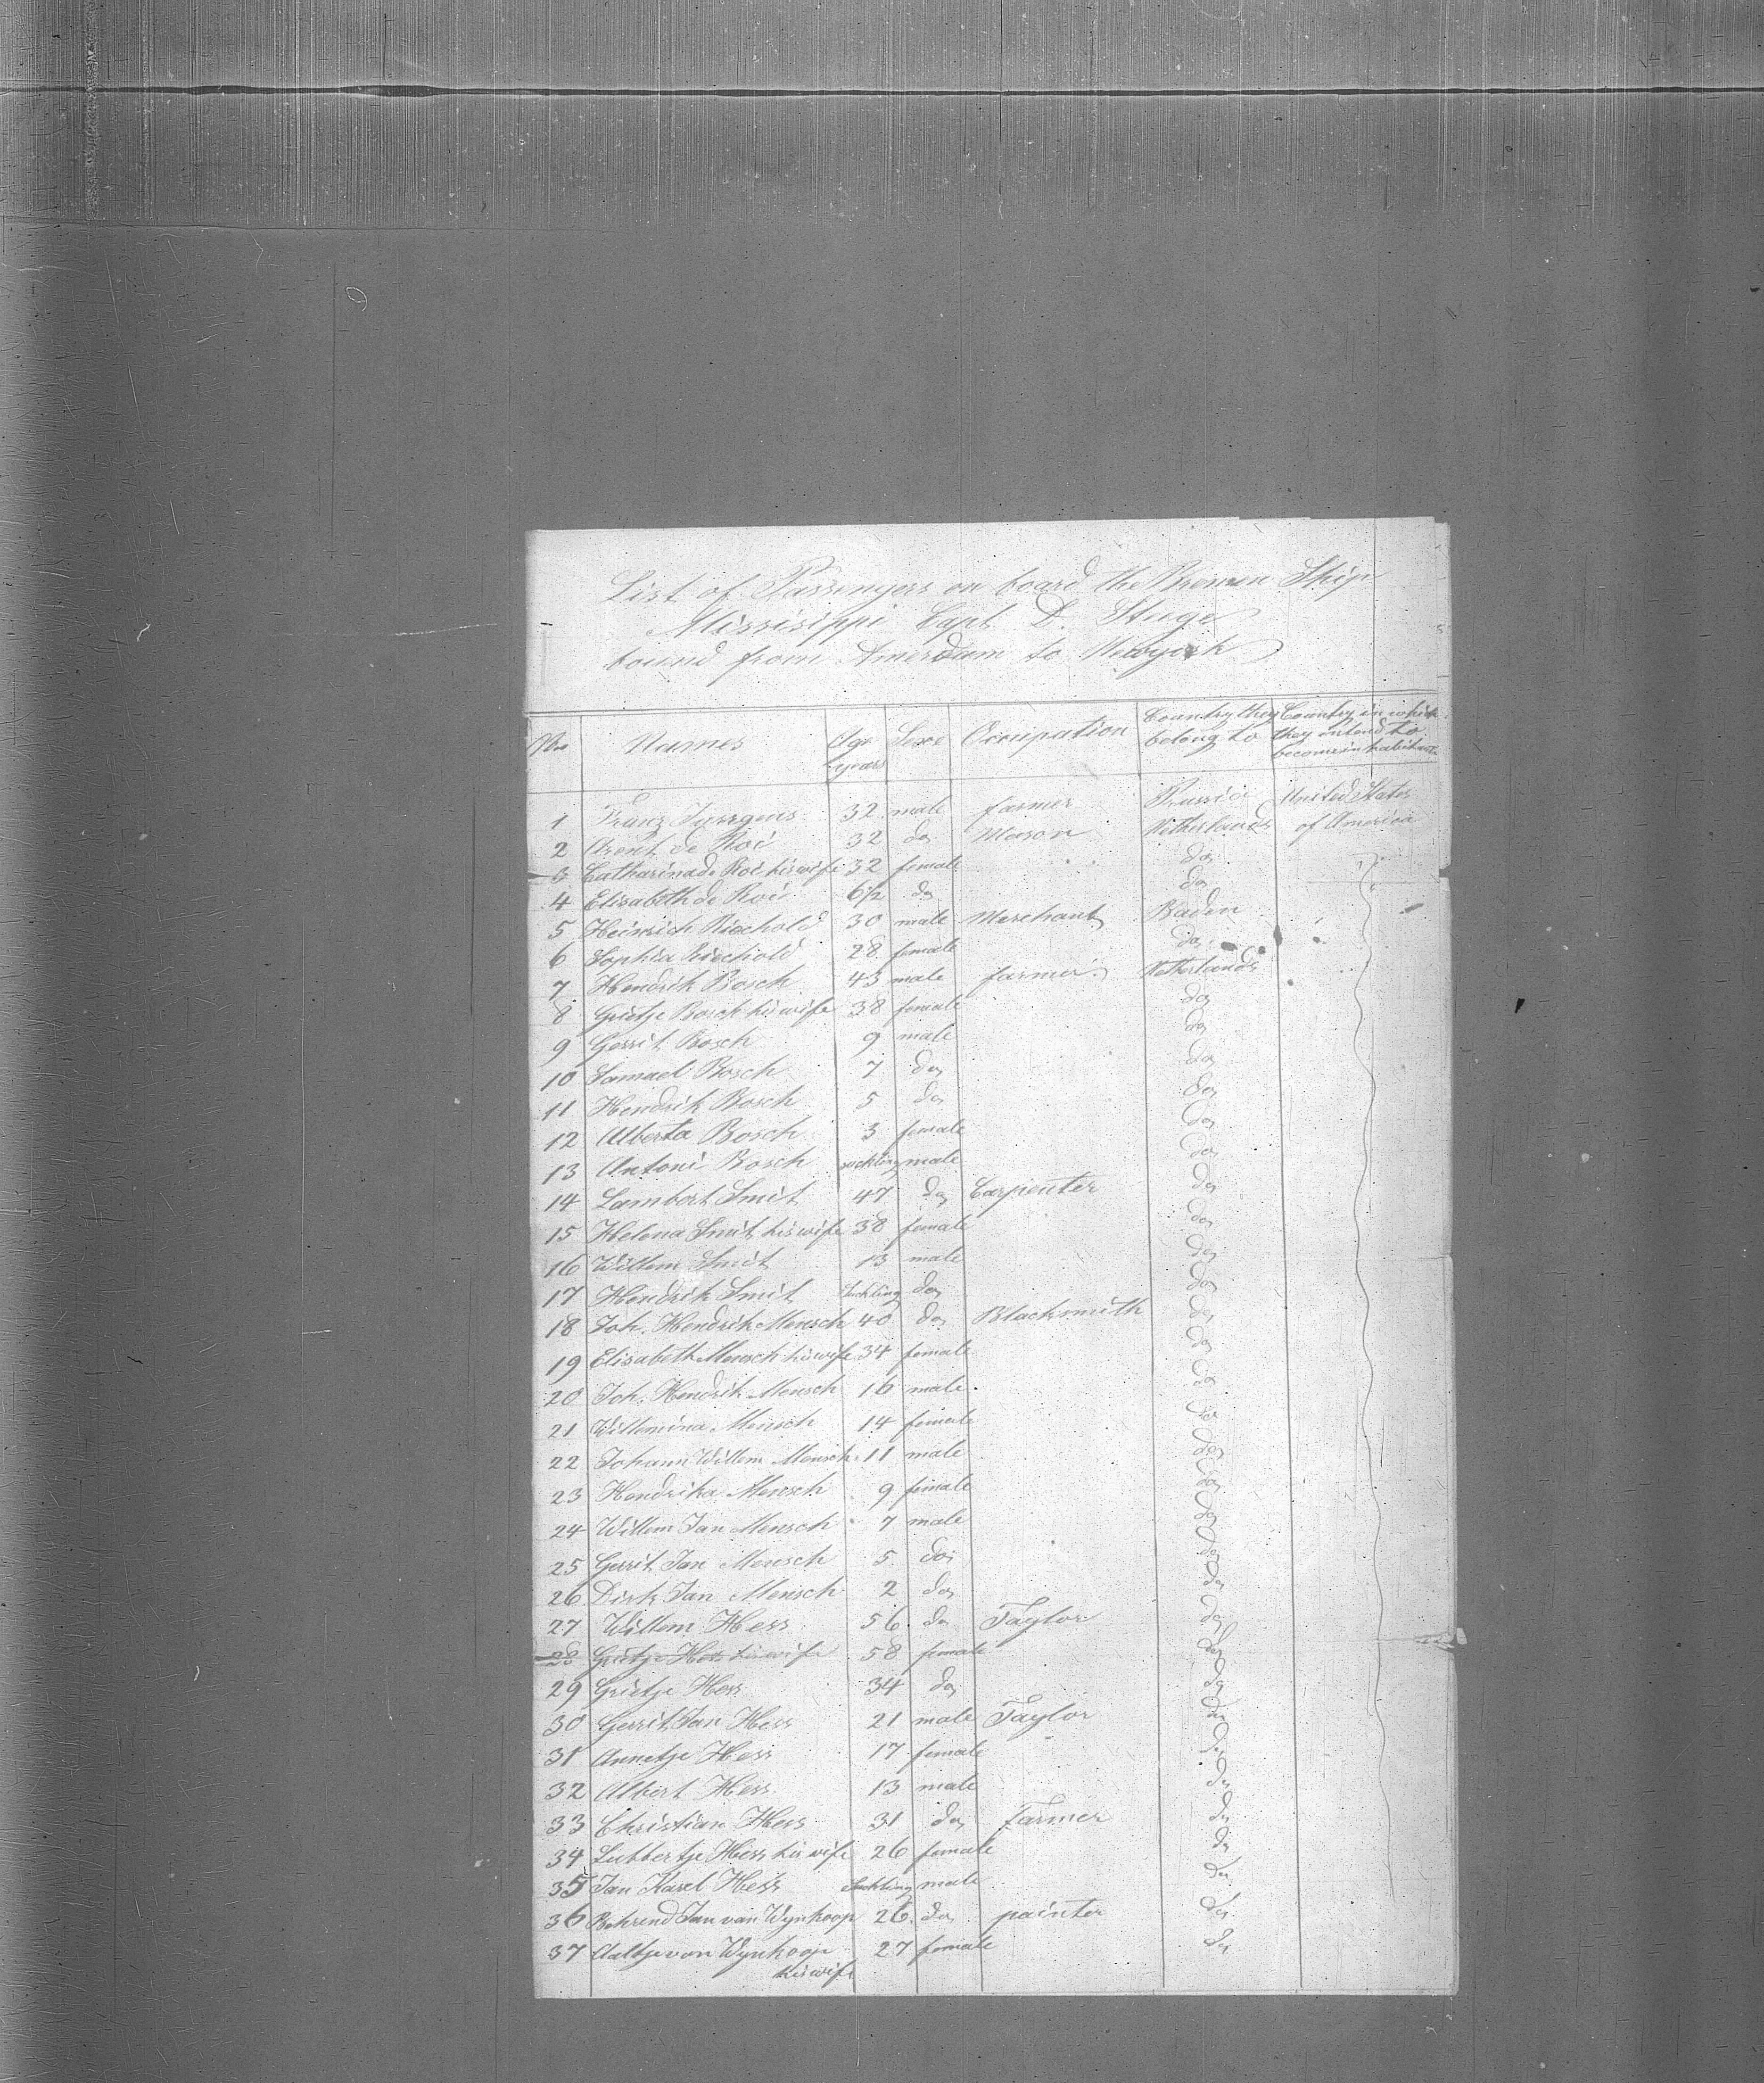 List of Passengers on board the Bremen Ship
Missisippi Capt. D. Stuge
bound from Amerdam to Newyork
Nro Names Age years Sexe Occupation Country they belong to Country in which they intend to become inhabitants
1 Franz Juergens 32 male farmer Prussia United States
2 Arent de Roi 32 do Meason Netherlands of America
3 Catharina de Roi his wife 32 female do
4 Elisabeth de Roi 6½ do do
5 Heinrich Riechold 30 male Merchant Baden
6 Sophia Riechold 28 female do
7 Hendrik Bosch 43 male farmer Netherlands
8 Grietje Bosch his wife 38 female do
9 Gerrit Bosch 9 male do
10 Samuel Bosch 7 do do
11 Hendrik Bosch 5 do do
12 Alberta Bosch 3 female do
13 Antoni Bosch suckling male do
14 Lambert Smit 47 do Carpenter do
15 Helena Smit his wife 38 female do
16 Willem Smit 13 male do
17 Hendrik Smit Suckling do do
18 Joh. Hendrik Mensch 40 do Blacksmith do
19 Elisabeth Mensch his wife 34 female do
20 Joh. Hendrik Mensch 16 male do
21 Willemina Mensch 14 female do
22 Johann Willem Mensch 11 male do
23 Hendrika Mensch 9 female do
24 Willem Jan Mensch 7 male do
25 Gerrit Jan Mensch 5 do do
26 Dirk Jan Mensch 2 do do
27 Willem Hess 56 do Taylor do
28 Grietje Hess his wife 58 female do
29 Grietje Hess 34 do do
30 Gerrit Jan Hess 21 male Taylor do
31 Annetje Hess 17 female do
32 Albert Hess 13 male do
33 Christian Hess 31 do farmer do
34 Lubbertje Hess his wife 26 female do
35 Jan Karel Hess Suckling male do
36 Behrend Jan van Wynhoop 26 do painter do
37 Aaltje van Wynhoop 27 female do
his wife